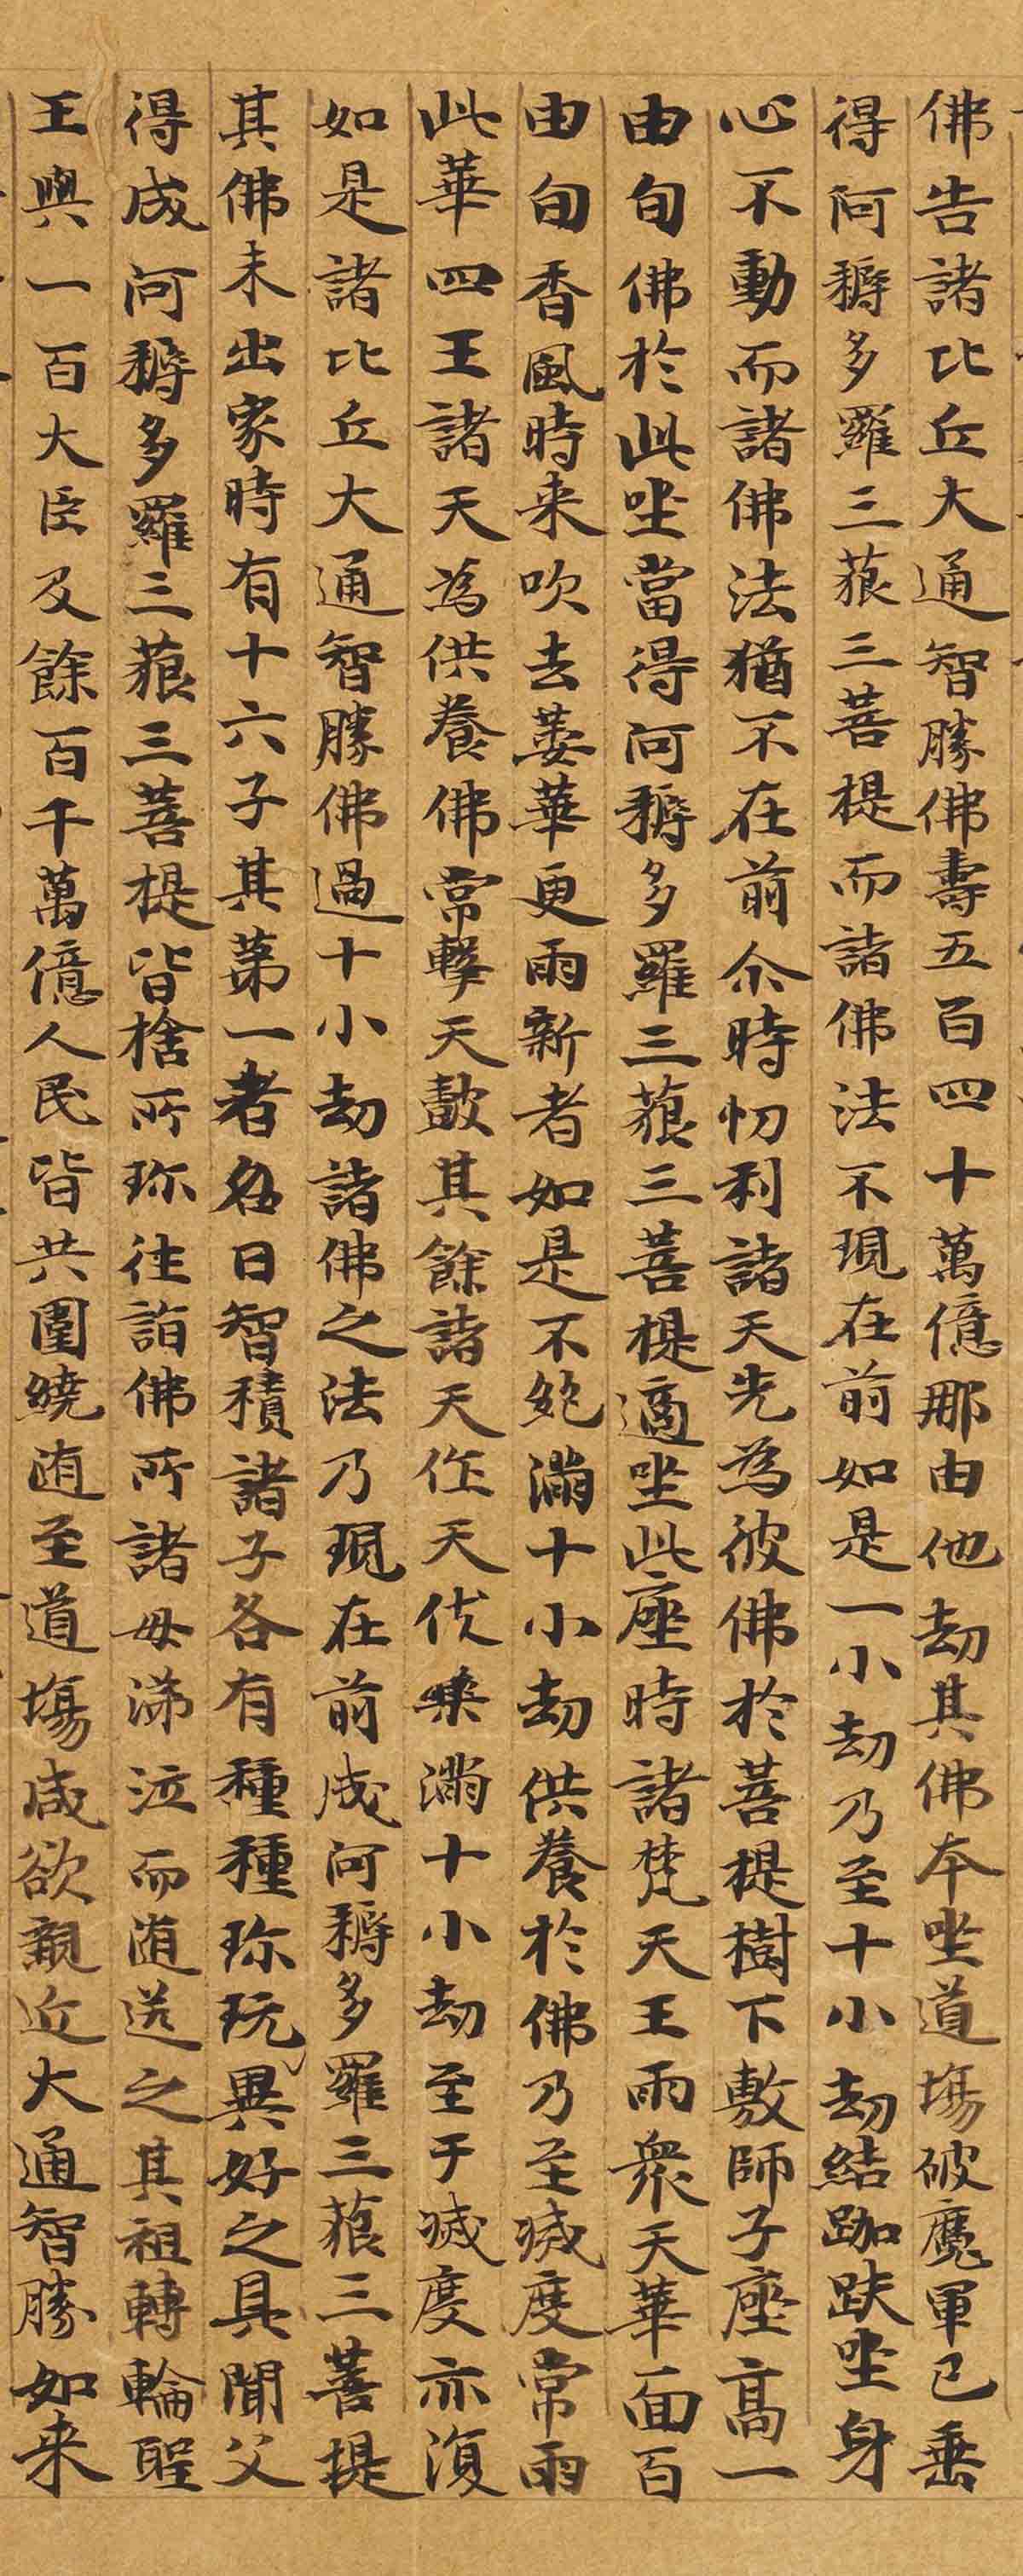 佛告諸比丘大通智勝佛壽五百四十萬億那由他劫其佛本坐道場破魔軍已垂
得阿耨多羅三藐三菩提而諸佛法不現在前如是一小劫乃至十小劫結跏趺坐身
心不動而諸佛法猶不在前尒時忉利諸天先為彼佛於菩提樹下敷師子座高一
由旬佛於此坐當得阿耨多羅三藐三菩提適坐此座時諸梵天王雨衆天華面百
由旬香風時来吹去萎華更雨新者如是不絶滿十小劫供養於佛乃至滅度常雨
此華四王諸天為供養佛常擊天鼓其餘諸天作天伎樂滿十小劫至于滅度亦復
如是諸比丘大通智勝佛過十小劫諸佛之法乃現在前成阿耨多羅三藐三菩提
其佛未出家時有十六子其第一者名曰智積諸子各有種種珎玩異好之具聞父
得成阿耨多羅三藐三菩提皆捨所珎往詣佛所諸母涕泣而随送之其祖轉輪聖
王與一百大臣及餘百千萬億人民皆共圍繞随至道場咸欲親近大通智勝如来